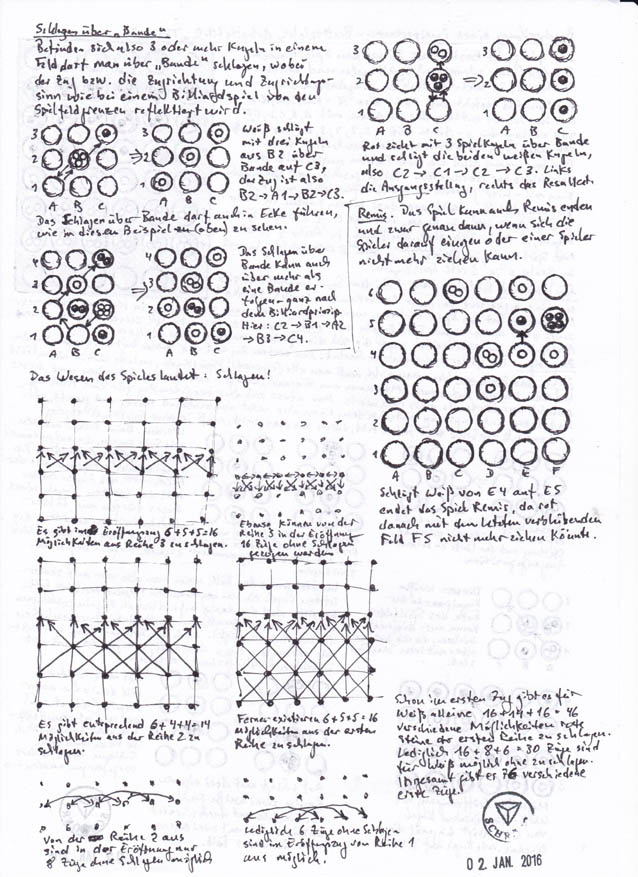 Schlagen über „Bande"
Befinden sich also 3 oder mehr Kugeln in einem
Feld darf man über „Bande" schlagen, wobei
der Zug bzw. die Zugrichtung und Zugrichtungs-
sinn wie bei einem Billiardspiel von den
Spielfeldgrenzen reflektiert wird.
3
2
1
A B C
⇒
3
2
1
A B C
Weiß schlägt
mit drei Kugeln
aus B2 über
Bande auf C3,
der Zug ist also
B2→A1→B2→C3.
Das Schlagen über Bande darf auch in Ecke führen,
wie in diesem Beispiel (oben) zu sehen.
4
3
2
1
A B C
⇒
4
3
2
1
A B C
Das Schlagen über
Bande kann auch
über mehr als
eine Bande er-
folgen – ganz nach
dem Billiardprinzip
Hier: C2→B1→A2
→B3→C4.
Das Wesen des Spieles lautet: Schlagen!
3
2
1
A B C
⇒
3
2
1
A B C
Rot zieht mit 3 Spielkugeln über Bande
und schlägt die beiden weißen Kugeln,
also C2→C1→C2→C3. Links
die Ausgangsstellung, rechts das Resultat.
Remis: Das Spiel kann auch Remis enden
und zwar genau dann, wenn sich die
Spieler darauf eingen oder einer Spieler
nicht mehr ziehen kann.
6
5
4
3
2
1
A B C D E F
Schlägt Weiß von E4 auf E5
endet das Spiel Remis, da rot
danach mit dem letzten verbleibenden
Feld F5 nicht mehr ziehen könnte.
Es gibt in der Eröffnung 6+5+5=16
Möglichkeiten aus Reihe 3 zu schlagen.
Ebenso können von der
Reihe 3 in der Eröffnung
16 Züge ohne Schlagen
gezogen werden
Es gibt entsprechend 6+4+4=14
Möglichkeiten aus der Reihe 2 zu
schlagen.
Ferner existieren 6+5+5=16
Möglichkeiten aus der ersten
Reihe zu schlagen.
Schon im ersten Zug gibt es für
Weiß alleine 16+14+16=46
verschiedene Möglichkeiten rote
Steine der ersten Reihe zu schlagen.
Lediglich 16+8+6=30 Züge sind
für Weiß möglich ohne zu schlagen.
Insgesamt gibt es 76 verschiedene
erste Züge.
Von der Reihe 2 aus
sind in der Eröffnung nur
8 Züge ohne Schlagen möglich
Lediglich 6 Züge ohne Schlagen
sind im Eröffnungszug von Reihe 1
aus möglich.
02. JAN. 2016